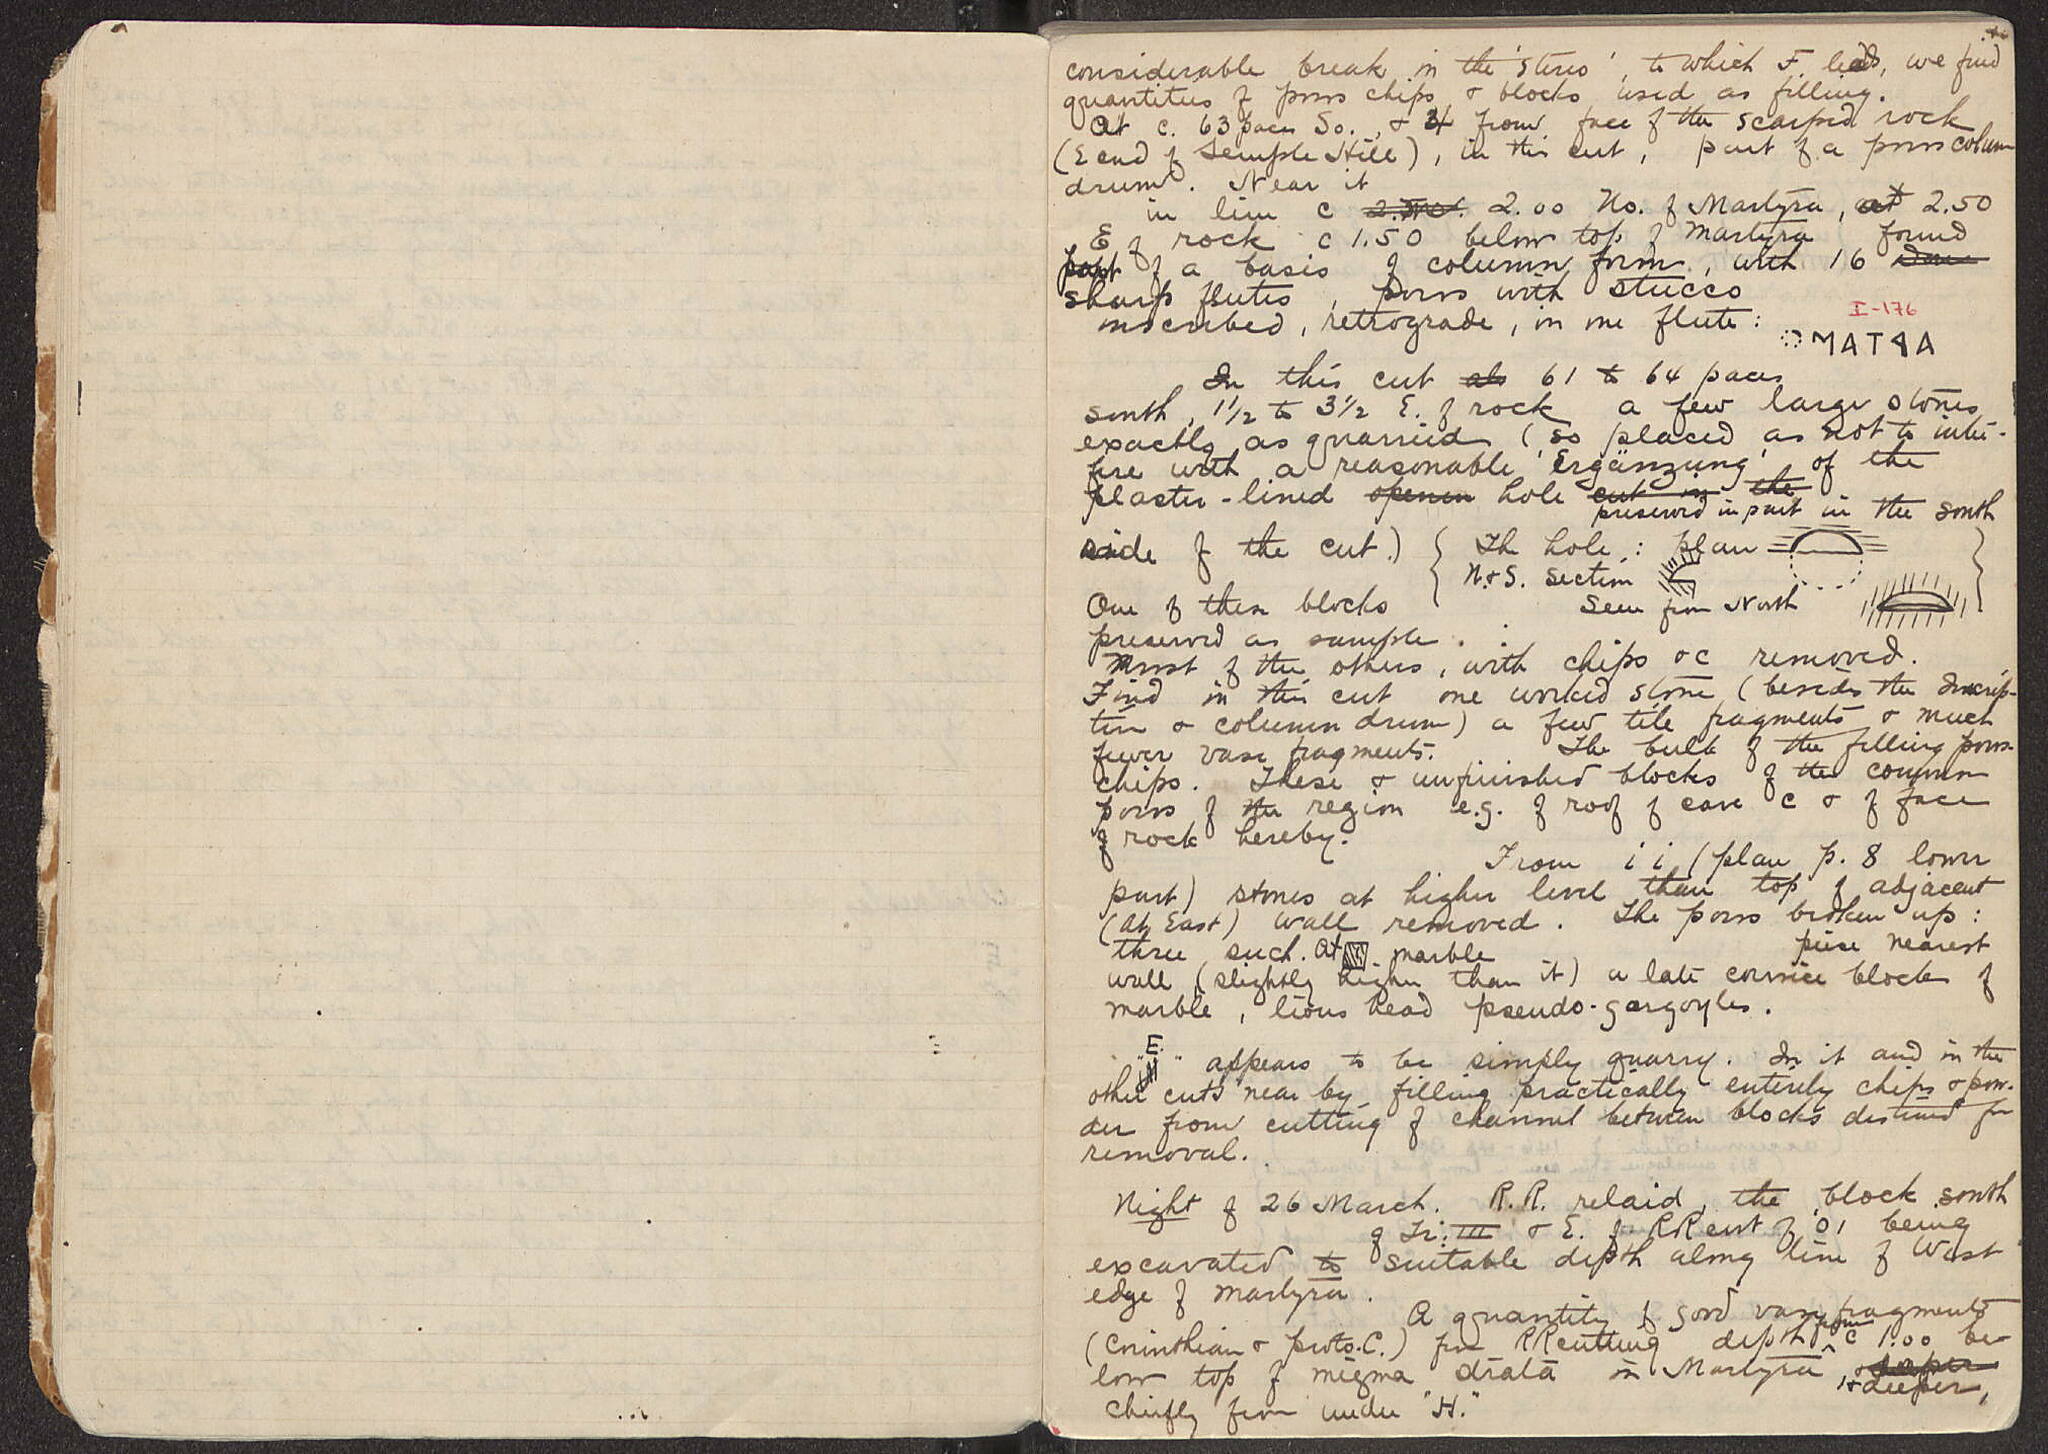 considerable break in the 'stereo', to which F leads, we find
quantities of poros chips & blocks used as filling.
At c. 63 paces So., & 34 from face of the scarped rock
(E end of Temple Hill), in this cut, part of a poros column
drum. Near it
in line c 2.00 No. of Martyra, at 2.50
E of rock c 1.50 below top of Martyra found
part of a basis of column form, with 16
sharp flutes, poros with stucco
inscribed, retrograde, in one flute:
I-176
ΜΑΤ
In this cut 61 to 64 paces
south, 1 1/2 to 3 1/2 E. of rock a few large stones
exactly as quarried (so placed as not to inter-
fere with a reasonable 'Ergänzung' of the
plaster-lined hole
preserved in part in the south
side of the cut.) { The hole: plan
N.&S. section
One of these blocks Seen from North
preserved as sample.
Most of the others, with chips &c removed.
Find in this cut one worked stone (besides the Inscrip-
tion & column drum) a few tile fragments & much
fewer vase fragments. The bulk of the filling poros
chips. These & unfinished blocks of the common
poros of the region e.g. of roof of cave C & of face
of rock hereby.
From i i (plan p. 8 lower
part) stones at higher level than top of adjacent
(at East) wall removed. The poros broken up:
three such. At marble piece nearest
wall (slightly higher than it) a late cornice block of
marble, lions head pseudo-gargoyles.
"E" appears to be simply quarry. In it and in the
other cuts near by filling practically entirely chips & pow-
der from cutting of channel between blocks destined for
removal.
Night of 26 March. R.R. relaid, the block south
of Tr. III & E. of RR cut of '01 being
excavated to suitable depth along line of West
edge of Martyra.
A quantity of good vase fragments
(Corinthian & proto-C.) from RR cutting depth from c 1.00 be-
low top of migma strata in Martyra & deeper,
chiefly from under "H."